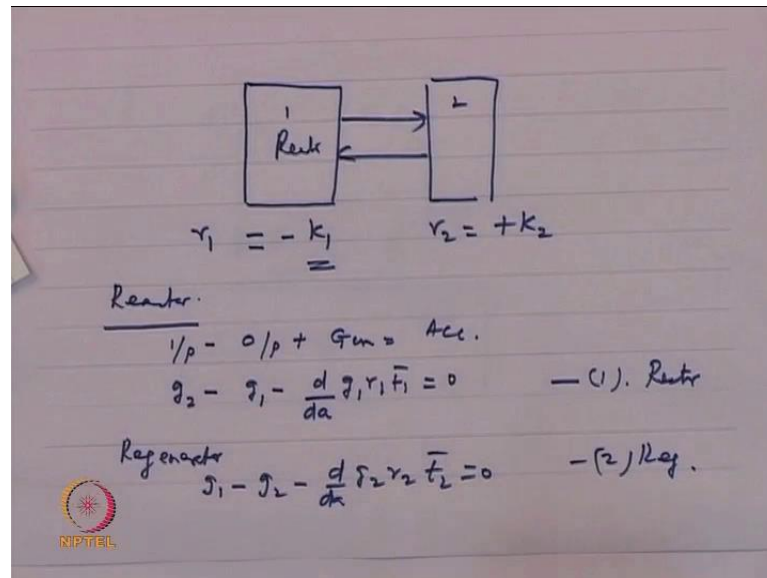 1 2
Reak
r₁ = - k₁ r₂ = + k₂
Reactor.
I/p - O/p + Gen = Acc.
g₂ - g₁ - d/da g₁ r₁ t̄₁ = 0 — (1). Reactr
Regenerator
g₁ - g₂ - d/da g₂ r₂ t̄₂ = 0 — (2) Reg.
NPTEL